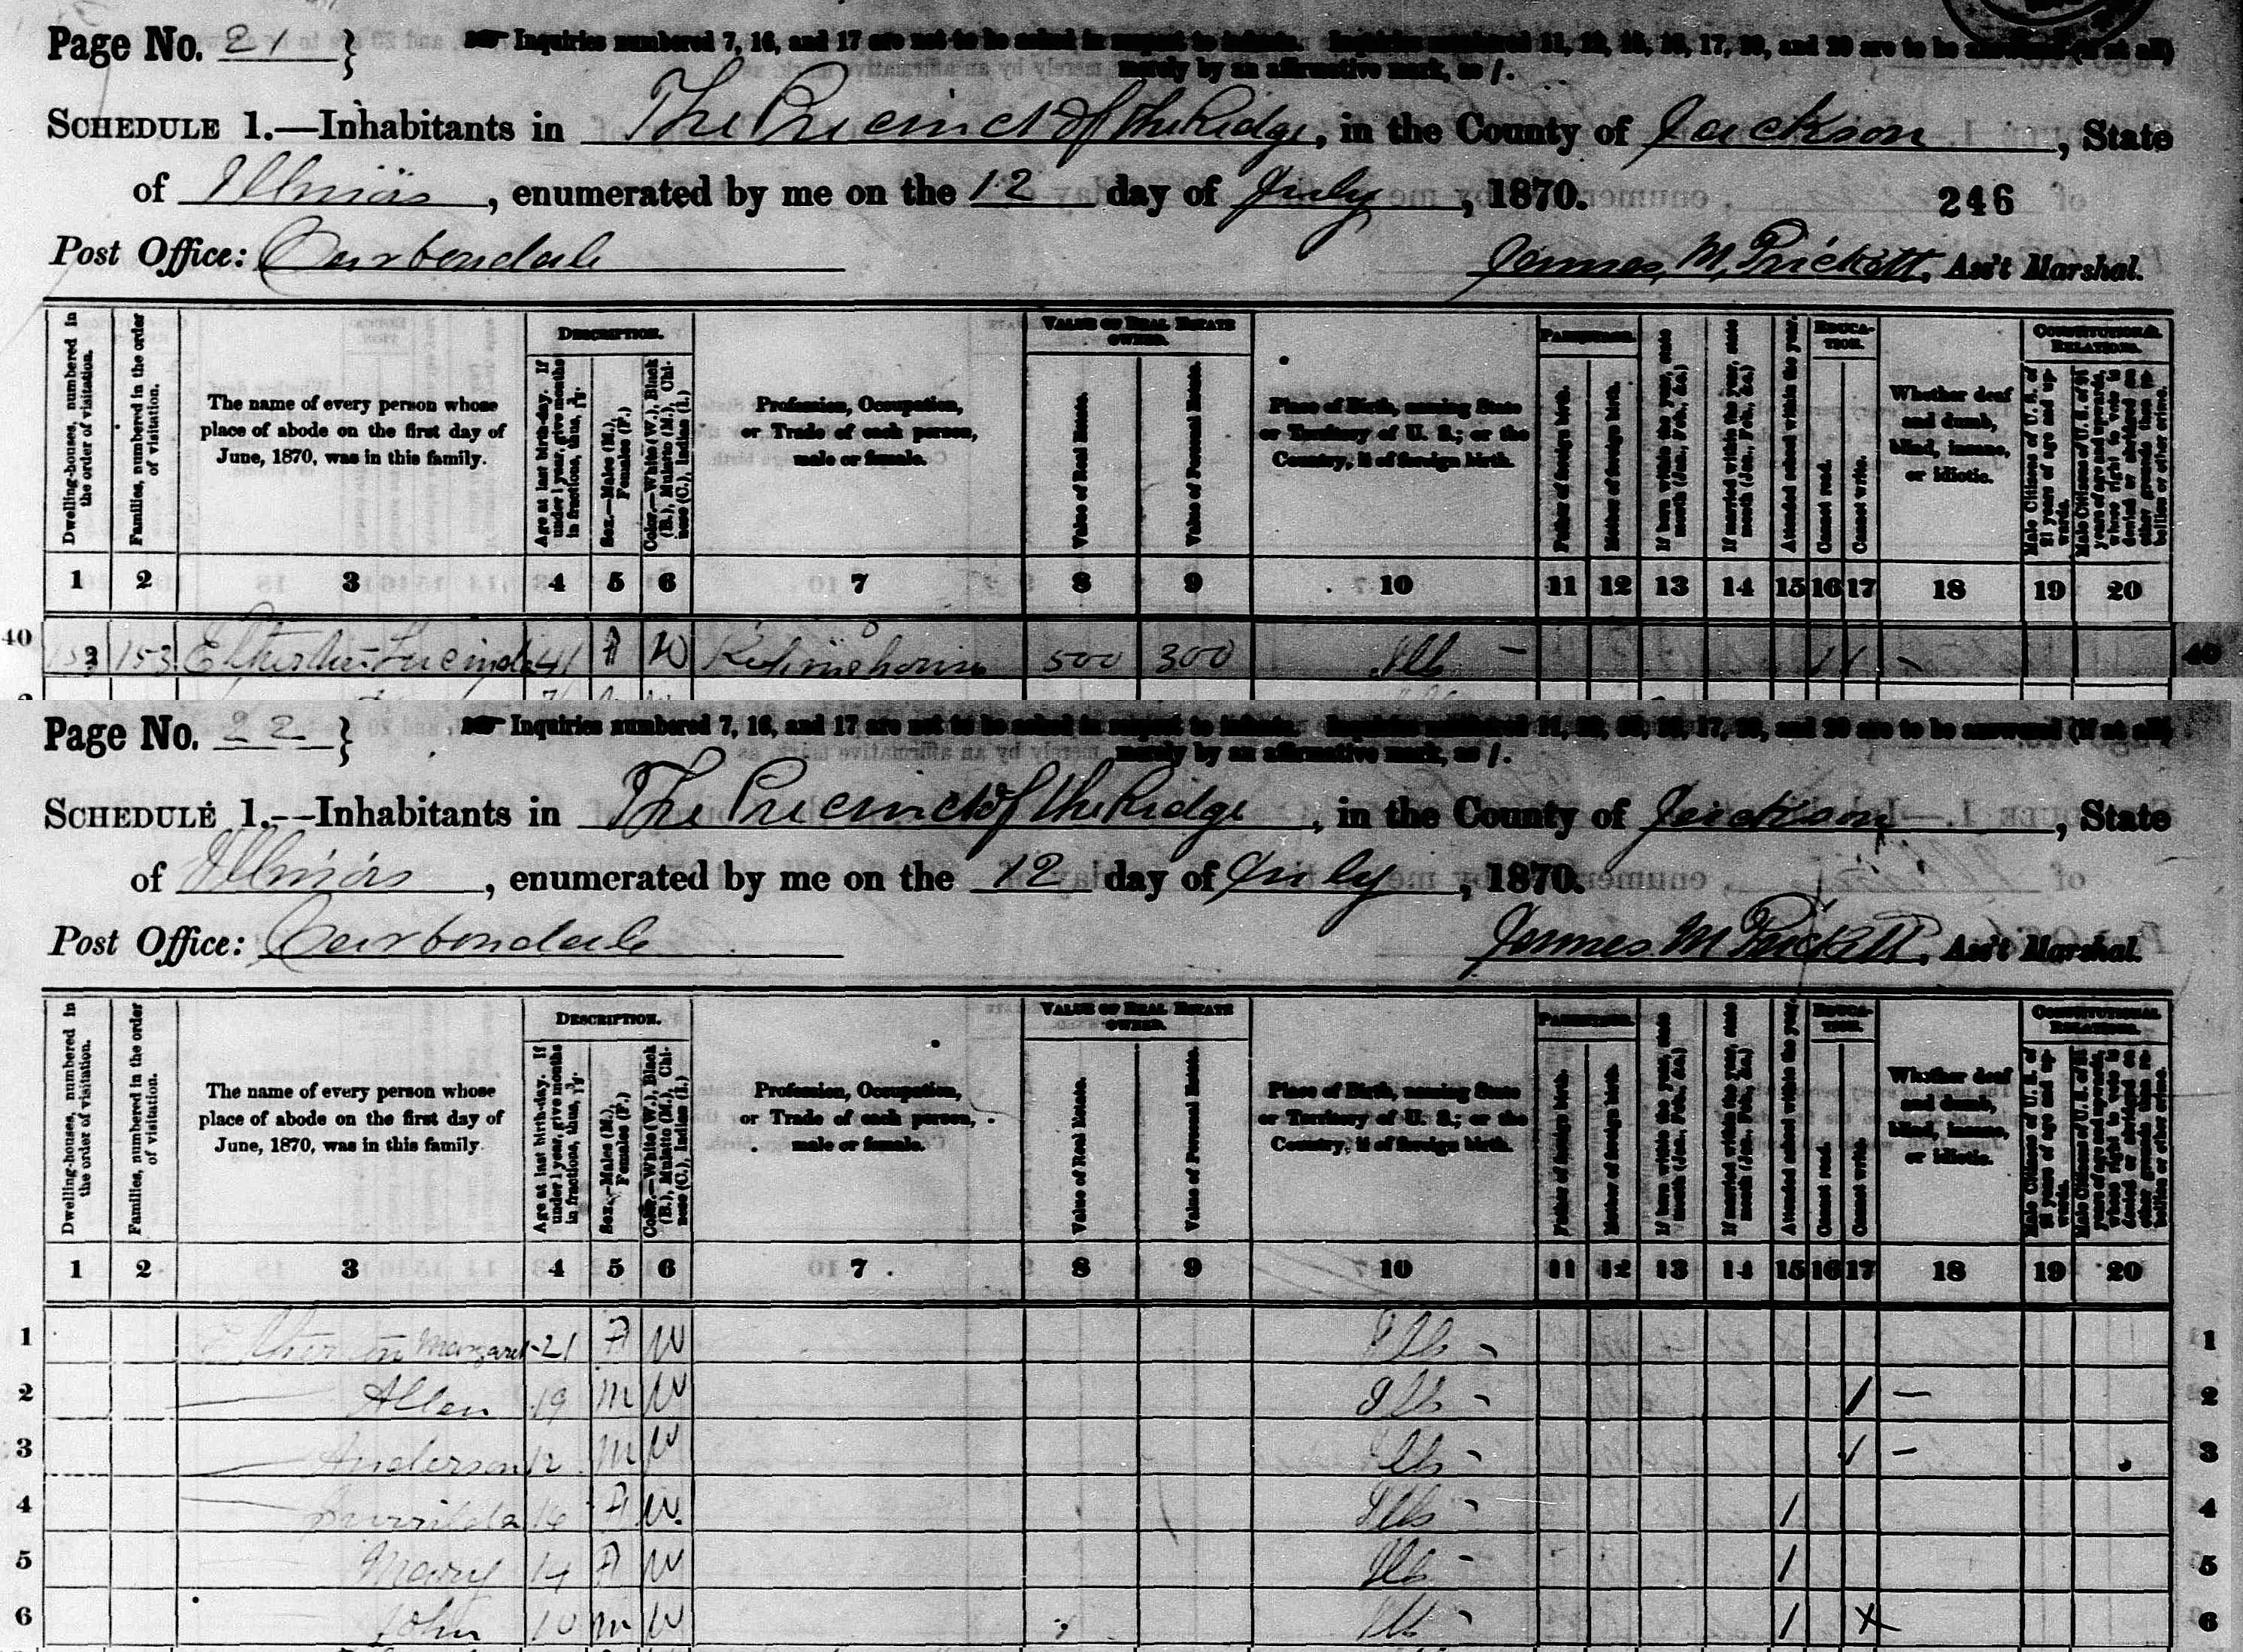 Page No. 21 }
Inquiries numbered 7, 16, and 17 are not to be asked in respect to infants. Inquiries numbered 11, 12, 15, 16, 17, 19, and 20 are to be answered (if at all)
merely by an affirmative mark, as /.
SCHEDULE 1.—Inhabitants in The Precinct of the Ridge, in the County of Jackson, State
of Illinois, enumerated by me on the 12 day of July, 1870.
246
Post Office: Carbondale
James M. Prickett, Ass't Marshal.
Dwelling-houses, numbered in the order of visitation.
Families, numbered in the order of visitation.
The name of every person whose place of abode on the first day of June, 1870, was in this family.
DESCRIPTION.
Age at last birth-day. If under 1 year, give months in fractions, thus, 3/12.
Sex.—Males (M.), Females (F.)
Color.—White (W.), Black (B.), Mulatto (M.), Chinese (C.), Indian (I.)
Profession, Occupation, or Trade of each person, male or female.
VALUE OF REAL ESTATE OWNED.
Value of Real Estate.
Value of Personal Estate.
Place of Birth, naming State or Territory of U. S.; or the Country, if of foreign birth.
PARENTAGE.
Father of foreign birth.
Mother of foreign birth.
If born within the year, state month (Jan., Feb., &c.)
If married within the year, state month (Jan., Feb., &c.)
Attended school within the year.
EDUCATION.
Cannot read.
Cannot write.
Whether deaf and dumb, blind, insane, or idiotic.
CONSTITUTIONAL RELATIONS.
Male Citizens of U. S. of 21 years of age and upwards.
Male Citizens of U. S. of 21 years of age and upwards, whose right to vote is denied or abridged on other grounds than rebellion or other crime.
1 2 3 4 5 6 7 8 9 10 11 12 13 14 15 16 17 18 19 20
40 153 153 Lucinda 41 F W 500 300 Ills - 1 1 - 40
Page No. 22 }
Inquiries numbered 7, 16, and 17 are not to be asked in respect to infants. Inquiries numbered 11, 12, 15, 16, 17, 19, and 20 are to be answered (if at all)
merely by an affirmative mark, as /.
SCHEDULE 1.—Inhabitants in The Precinct of the Ridge, in the County of Jackson, State
of Illinois, enumerated by me on the 12 day of July, 1870.
Post Office: Carbondale
James M Prickett, Ass't Marshal.
Dwelling-houses, numbered in the order of visitation.
Families, numbered in the order of visitation.
The name of every person whose place of abode on the first day of June, 1870, was in this family.
DESCRIPTION.
Age at last birth-day. If under 1 year, give months in fractions, thus, 3/12.
Sex.—Males (M.), Females (F.)
Color.—White (W.), Black (B.), Mulatto (M.), Chinese (C.), Indian (I.)
Profession, Occupation, or Trade of each person, male or female.
VALUE OF REAL ESTATE OWNED.
Value of Real Estate.
Value of Personal Estate.
Place of Birth, naming State or Territory of U. S.; or the Country, if of foreign birth.
PARENTAGE.
Father of foreign birth.
Mother of foreign birth.
If born within the year, state month (Jan., Feb., &c.)
If married within the year, state month (Jan., Feb., &c.)
Attended school within the year.
EDUCATION.
Cannot read.
Cannot write.
Whether deaf and dumb, blind, insane, or idiotic.
CONSTITUTIONAL RELATIONS.
Male Citizens of U. S. of 21 years of age and upwards.
Male Citizens of U. S. of 21 years of age and upwards, whose right to vote is denied or abridged on other grounds than rebellion or other crime.
1 2 3 4 5 6 7 8 9 10 11 12 13 14 15 16 17 18 19 20
1 Margaret 21 F W Ills - 1
2 — Allen 19 M W Ills - / — 2
3 — Anderson 12 M W Ills - / — 3
4 — 16 F W Ills - / 4
5 — Mary 14 F W Ills - / 5
6 John 10 M W Ills - / X 6